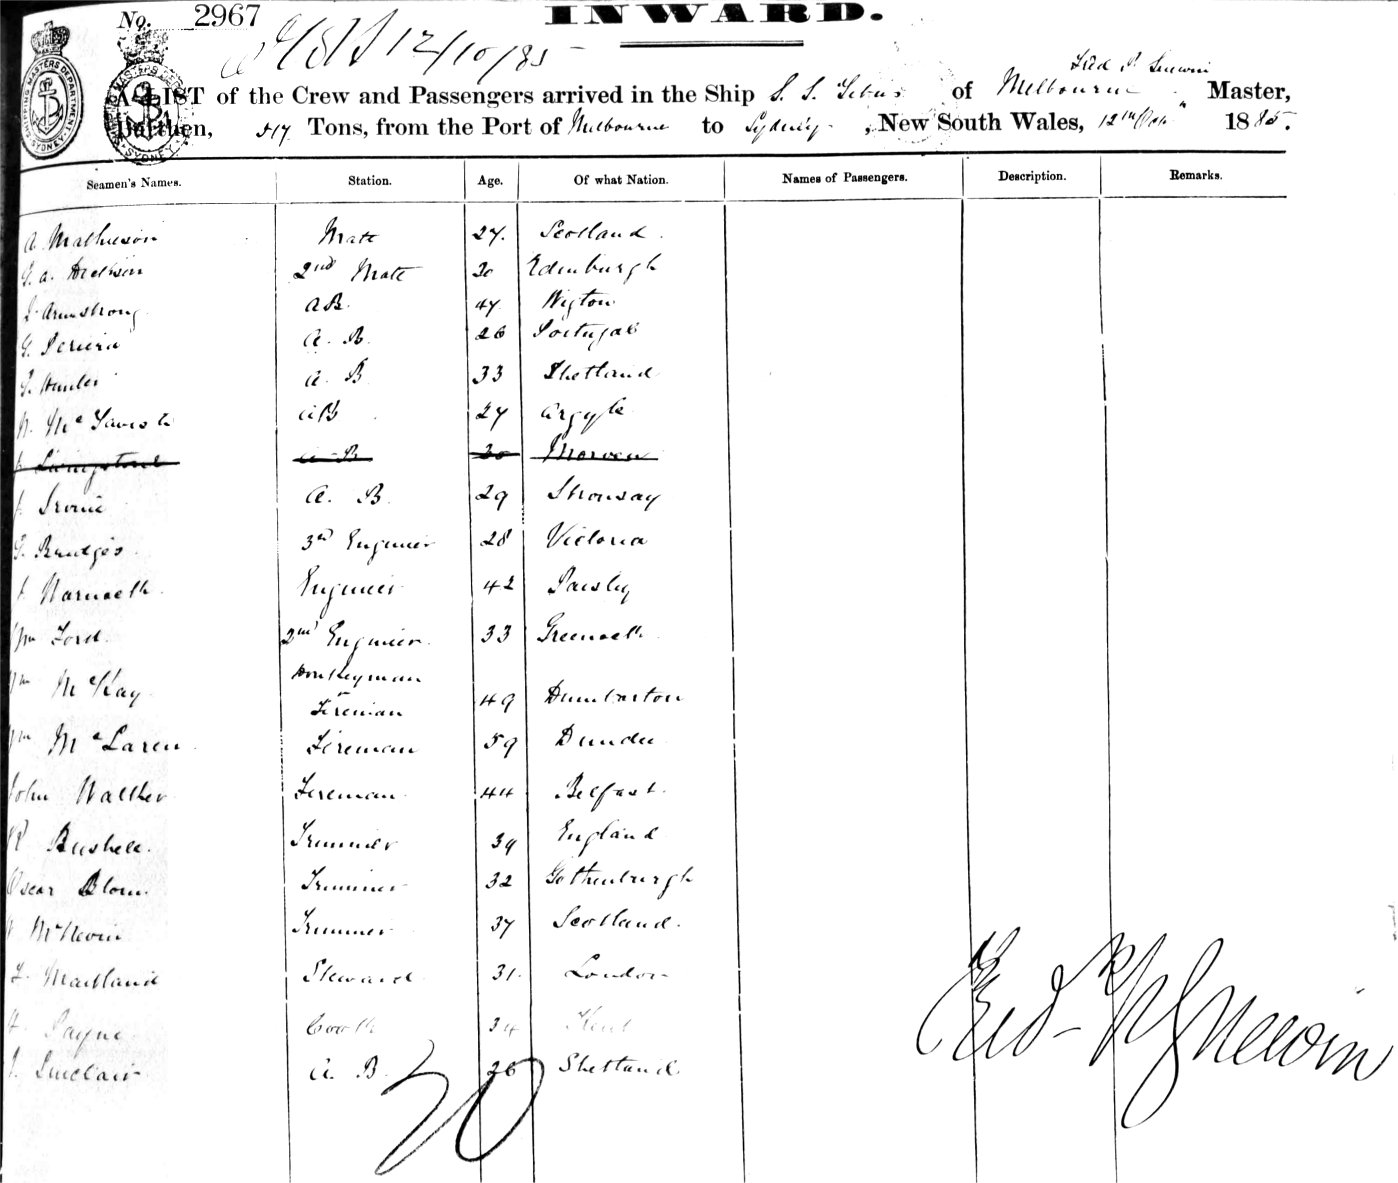 No. 2967
INWARD.
12/10/85
A LIST of the Crew and Passengers arrived in the Ship S. S. of Melbourne Master,
Burthen, 517 Tons, from the Port of Melbourne to Sydney, New South Wales, 12th Oct 1885.
Seamen's Names. Station. Age. Of what Nation. Names of Passengers. Description. Remarks.
A. Mathieson Mate 27. Scotland.
G. A. Dickson 2nd Mate 30 Edinburgh
J. Armstrong AB. 47. Wigton
G. Periera A. B. 26 Portugal
Hunter A. B 33 Shetland
Mc Tavish AB 27 Argyle
Livingstone A B 30 Morven
J. Irvine A. B. 29 Stronsay
Bridges 3rd Engineer 28 Victoria
Engineer 42 Paisley
Wm Ford. 2nd Engineer. 33 Greenock
Wm McKay Donkeyman
Fireman 49 Dumbarton
Wm McLaren Fireman 59 Dundee
John Walther Fireman 44 Belfast.
R Bushell. Trimmer 39 England
Oscar Blom. Trimmer 32 Gothenburgh
McNevin Trimmer 37 Scotland.
Maitland Steward 31. London
H. Payne Cook 34 Kent
J. Sinclair A. B. 26 Shetland
20
SHIPPING MASTERS DEPARTMENT
SYDNEY